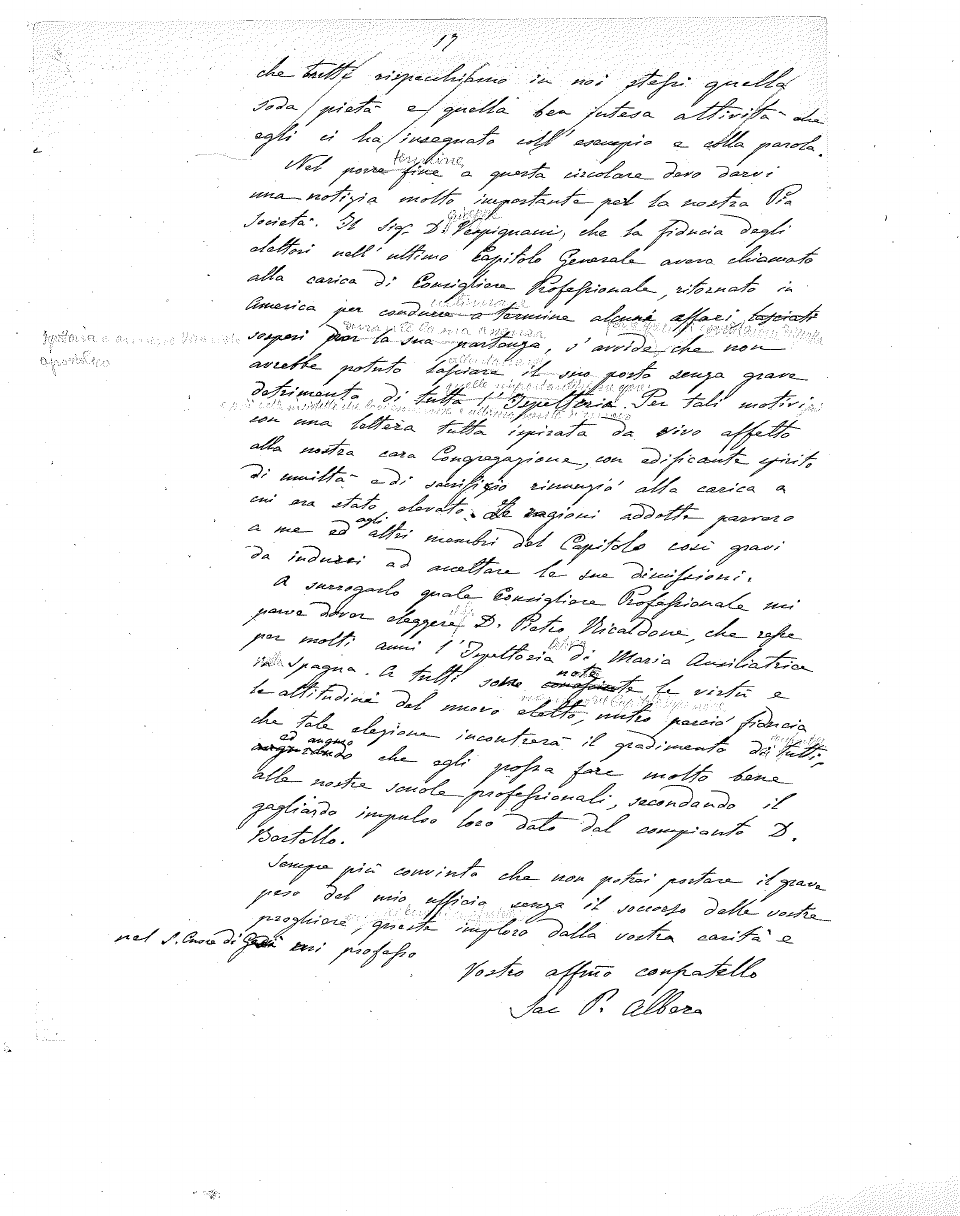 17
che tutti rispecchiamo in noi stessi quella
soda pietà e quella ben intesa attività che
egli ci ha insegnato coll'esempio e colla parola.
termine
Nel porre fine a questa circolare devo darvi
una notizia molto importante per la nostra Pia
Società. Il Sig. D. Vespignani, che la fiducia degli
elettori nell'ultimo Capitolo Generale aveva chiamato
alla carica di Consigliere Professionale, ritornato in
America per condurre a termine alcuni affari lasciati
durante la sua assenza
sospesi per la sua partenza, s'avvide che non
avrebbe potuto lasciare il suo posto senza grave
detrimento di tutta l'Ispettoria. Per tali motivi
con una lettera tutta ispirata da vivo affetto
alla nostra cara Congregazione, con edificante spirito
di umiltà e di sacrifizio rinunziò alla carica a
cui era stato elevato. Le ragioni addotte parvero
agli
a me ed altri membri del Capitolo così gravi
da indurci ad accettare le sue dimissioni.
A surrogarlo quale Consigliere Professionale mi
parve dover eleggere D. Pietro Ricaldone, che resse
per molti anni l'Ispettoria di Maria Ausiliatrice
nella Spagna. A tutti sono note conosciute le virtù e
le attitudini del nuovo eletto, nutro perciò fiducia
che tale elezione incontrerà il gradimento di tutti,
ed auguro
augurando che egli possa fare molto bene
alle nostre scuole professionali, secondando il
gagliardo impulso loro dato dal compianto D.
Bertello.
Sempre più convinto che non potrei portare il grave
peso del mio ufficio senza il soccorso delle vostre
preghiere, queste imploro dalla vostra carità e
nel S. Cuore di Gesù mi professo
Vostro affmo confratello
Sac P. Albera